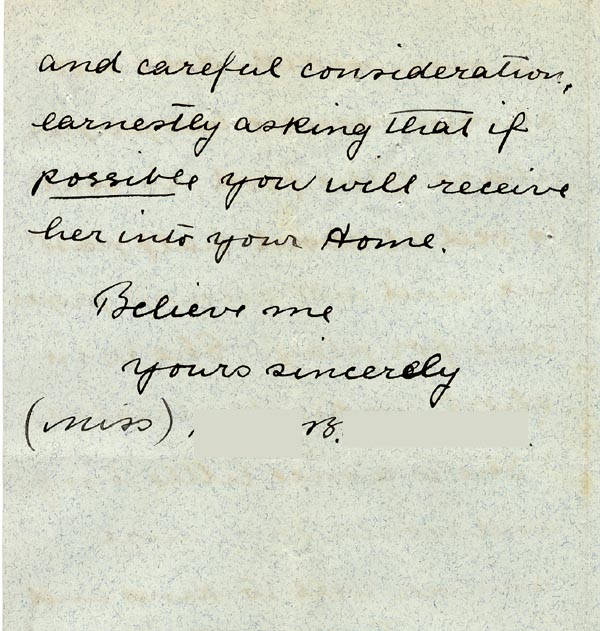 and careful consideration,
earnestly asking that if
possible you will receive
her into your Home.
Believe me
yours sincerely
(Miss), B.